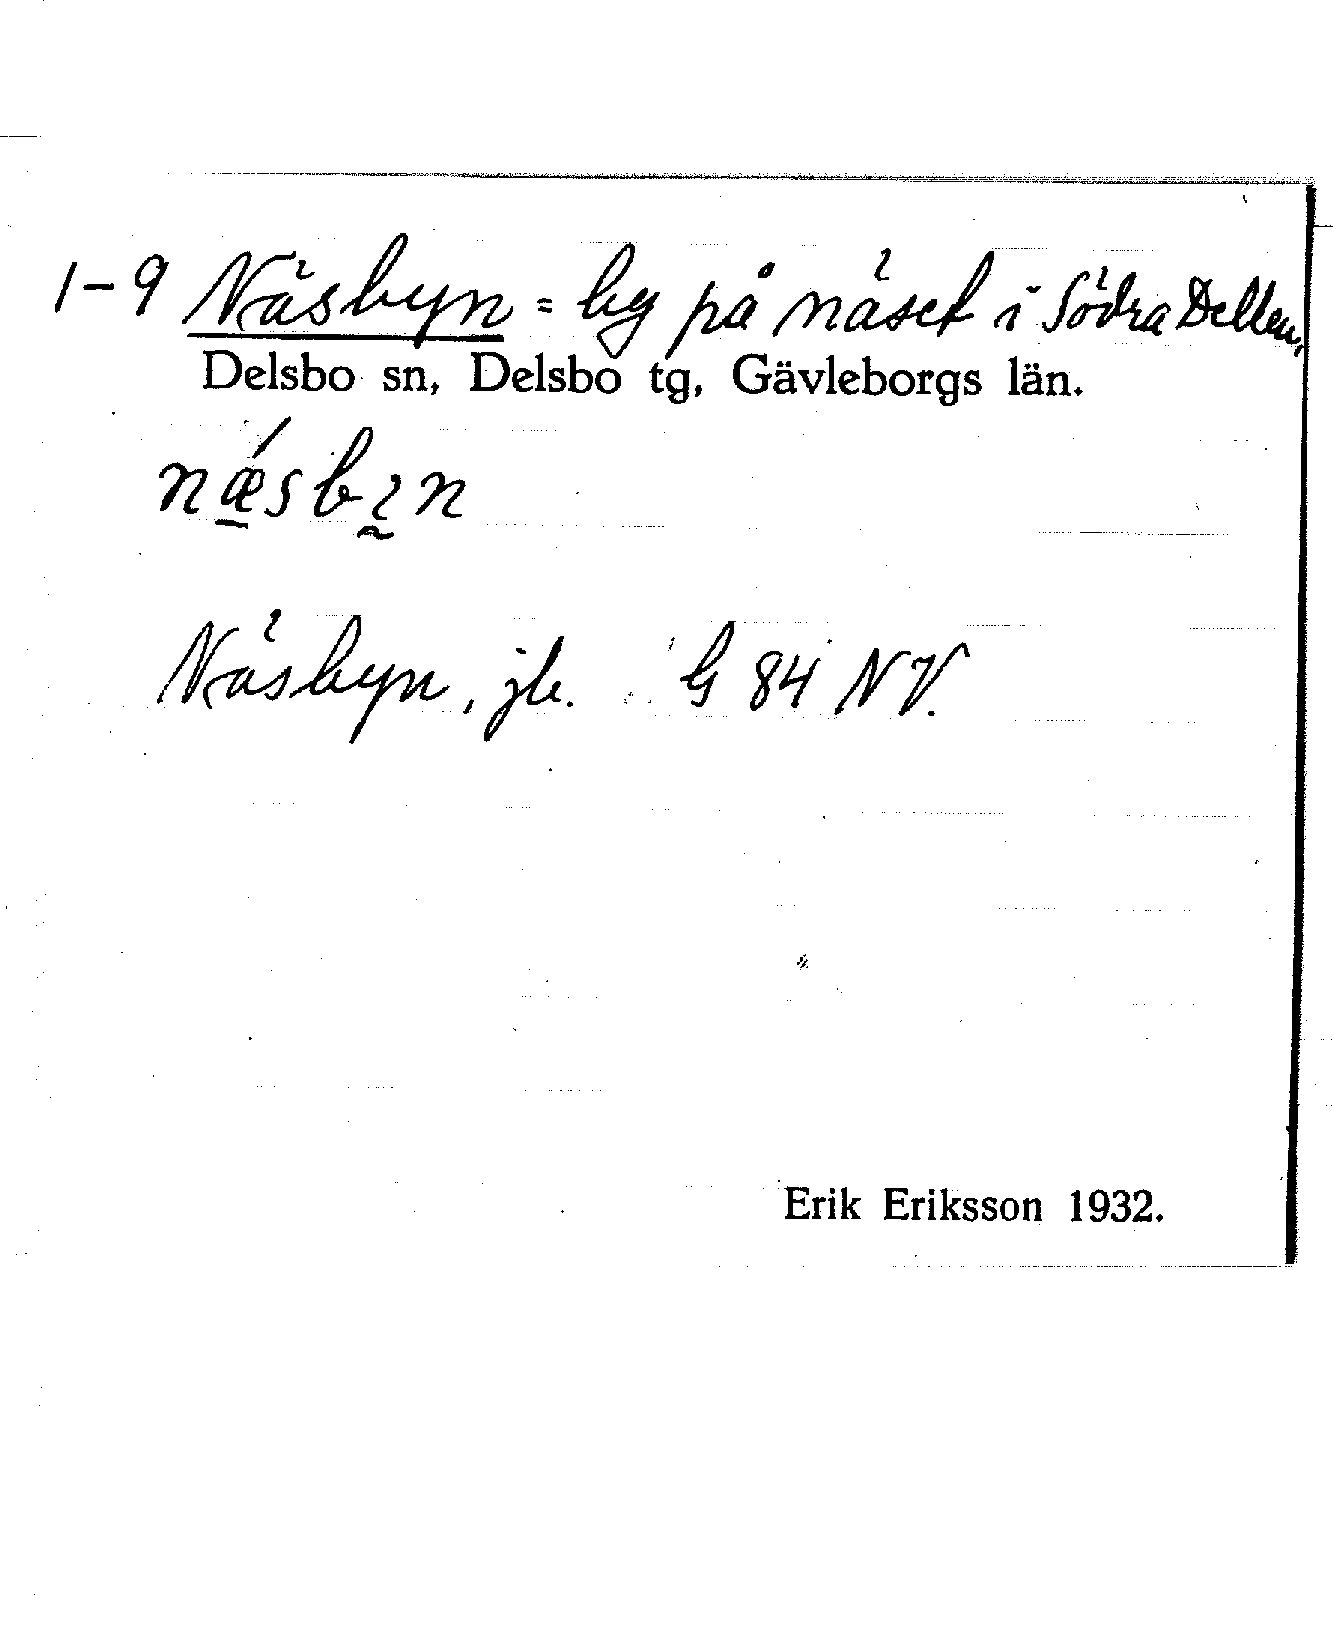 1-9 Näsbyn = by på näset i Södra Dellen.
Delsbo sn, Delsbo tg, Gävleborgs län.
nǽ̠sbɿ̰n
Näsbyn, jb. G 84 NV.
Erik Eriksson 1932.